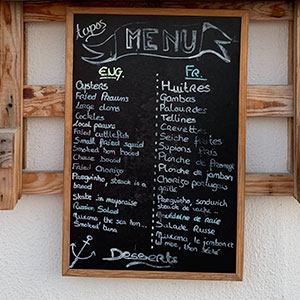 tapas
MENU
ENG.
Oysters
Fried Prawns
Large clams
Cockles
Local prawns
Fried cuttlefish
Small fried squid
Smoked ham board
Cheese board
Fried Chorizo
Preguinho, steak in a
bread
Skate in mayonaise
Russian Salad
Muxama, the sea ham...
Smoked tuna
FR.
Huitres
Gambas
Palourdes
Tellines
Crevettes
Seiche frites
Supions frais
Planche de fromage
Planche de jambon
Choriço portugais
grillé
Preguinho, sandwich
steack de vache
de raie
Salade Russe
Muxama, le jambon et
la mer, thon séché
Desserts